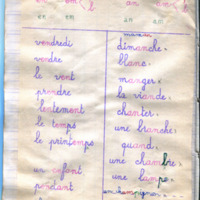 en em
an am
en em
an am
maman
vendredi
vendre
le vent
prendre
lentement
le temps
le printemps
un enfant
pendant
dimanche.
blanc.
manger.
la viande.
chanter.
une branche.
quand.
une chambre.
une lampe.
un champignon